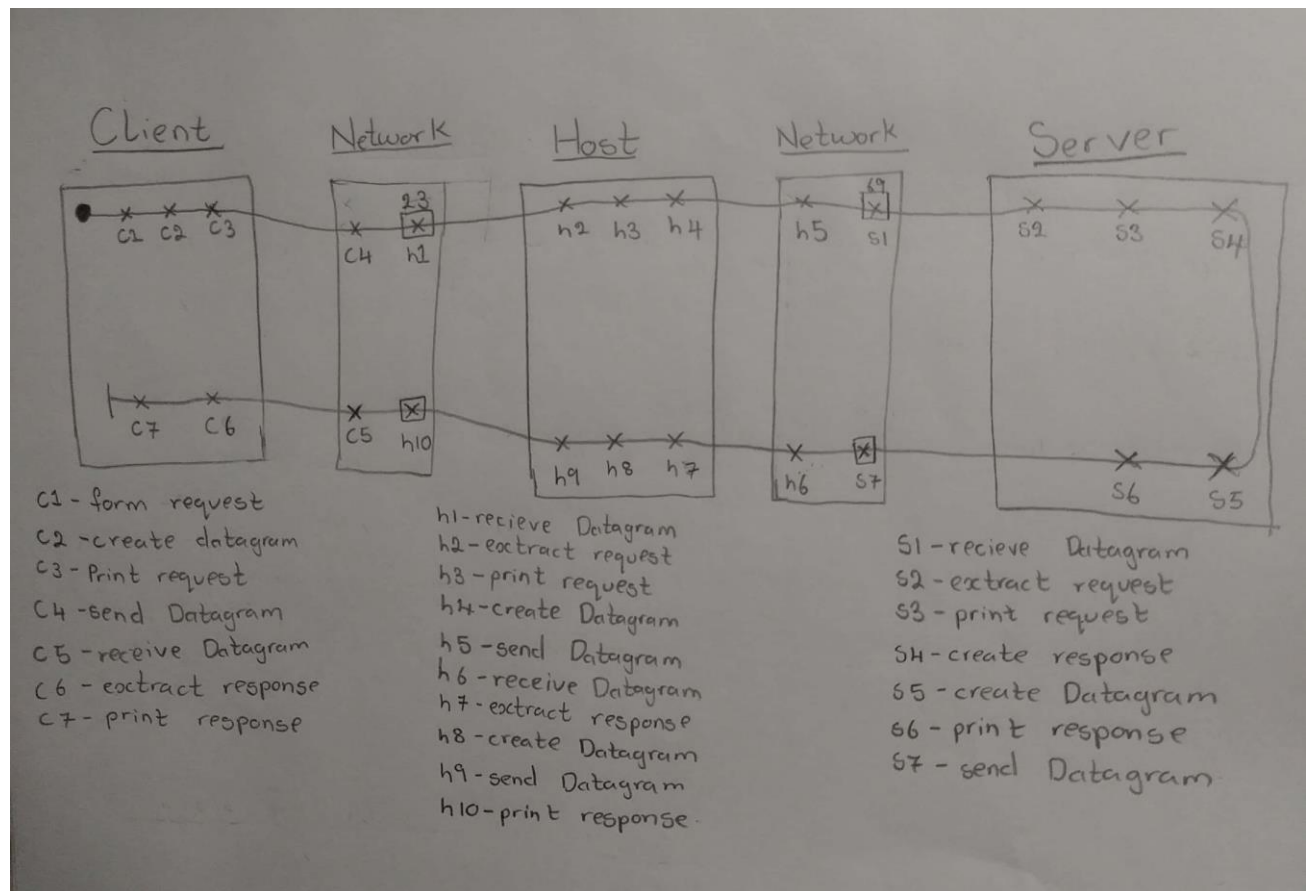 Client
Network
Host
Network
Server
23
69
C1 C2 C3
C4 h1
h2 h3 h4
h5 S1
S2 S3 S4
C7 C6
C5 h10
h9 h8 h7
h6 S7
S6 S5
C1 - form request
C2 - create datagram
C3 - Print request
C4 - send Datagram
C5 - receive Datagram
C6 - extract response
C7 - print response
h1 - recieve Datagram
h2 - eoctract request
h3 - print request
h4 - create Datagram
h5 - send Datagram
h6 - receive Datagram
h7 - extract response
h8 - create Datagram
h9 - send Datagram
h10 - print response.
S1 - recieve Datagram
S2 - extract request
S3 - print request
S4 - create response
S5 - create Datagram
S6 - print response
S7 - send Datagram